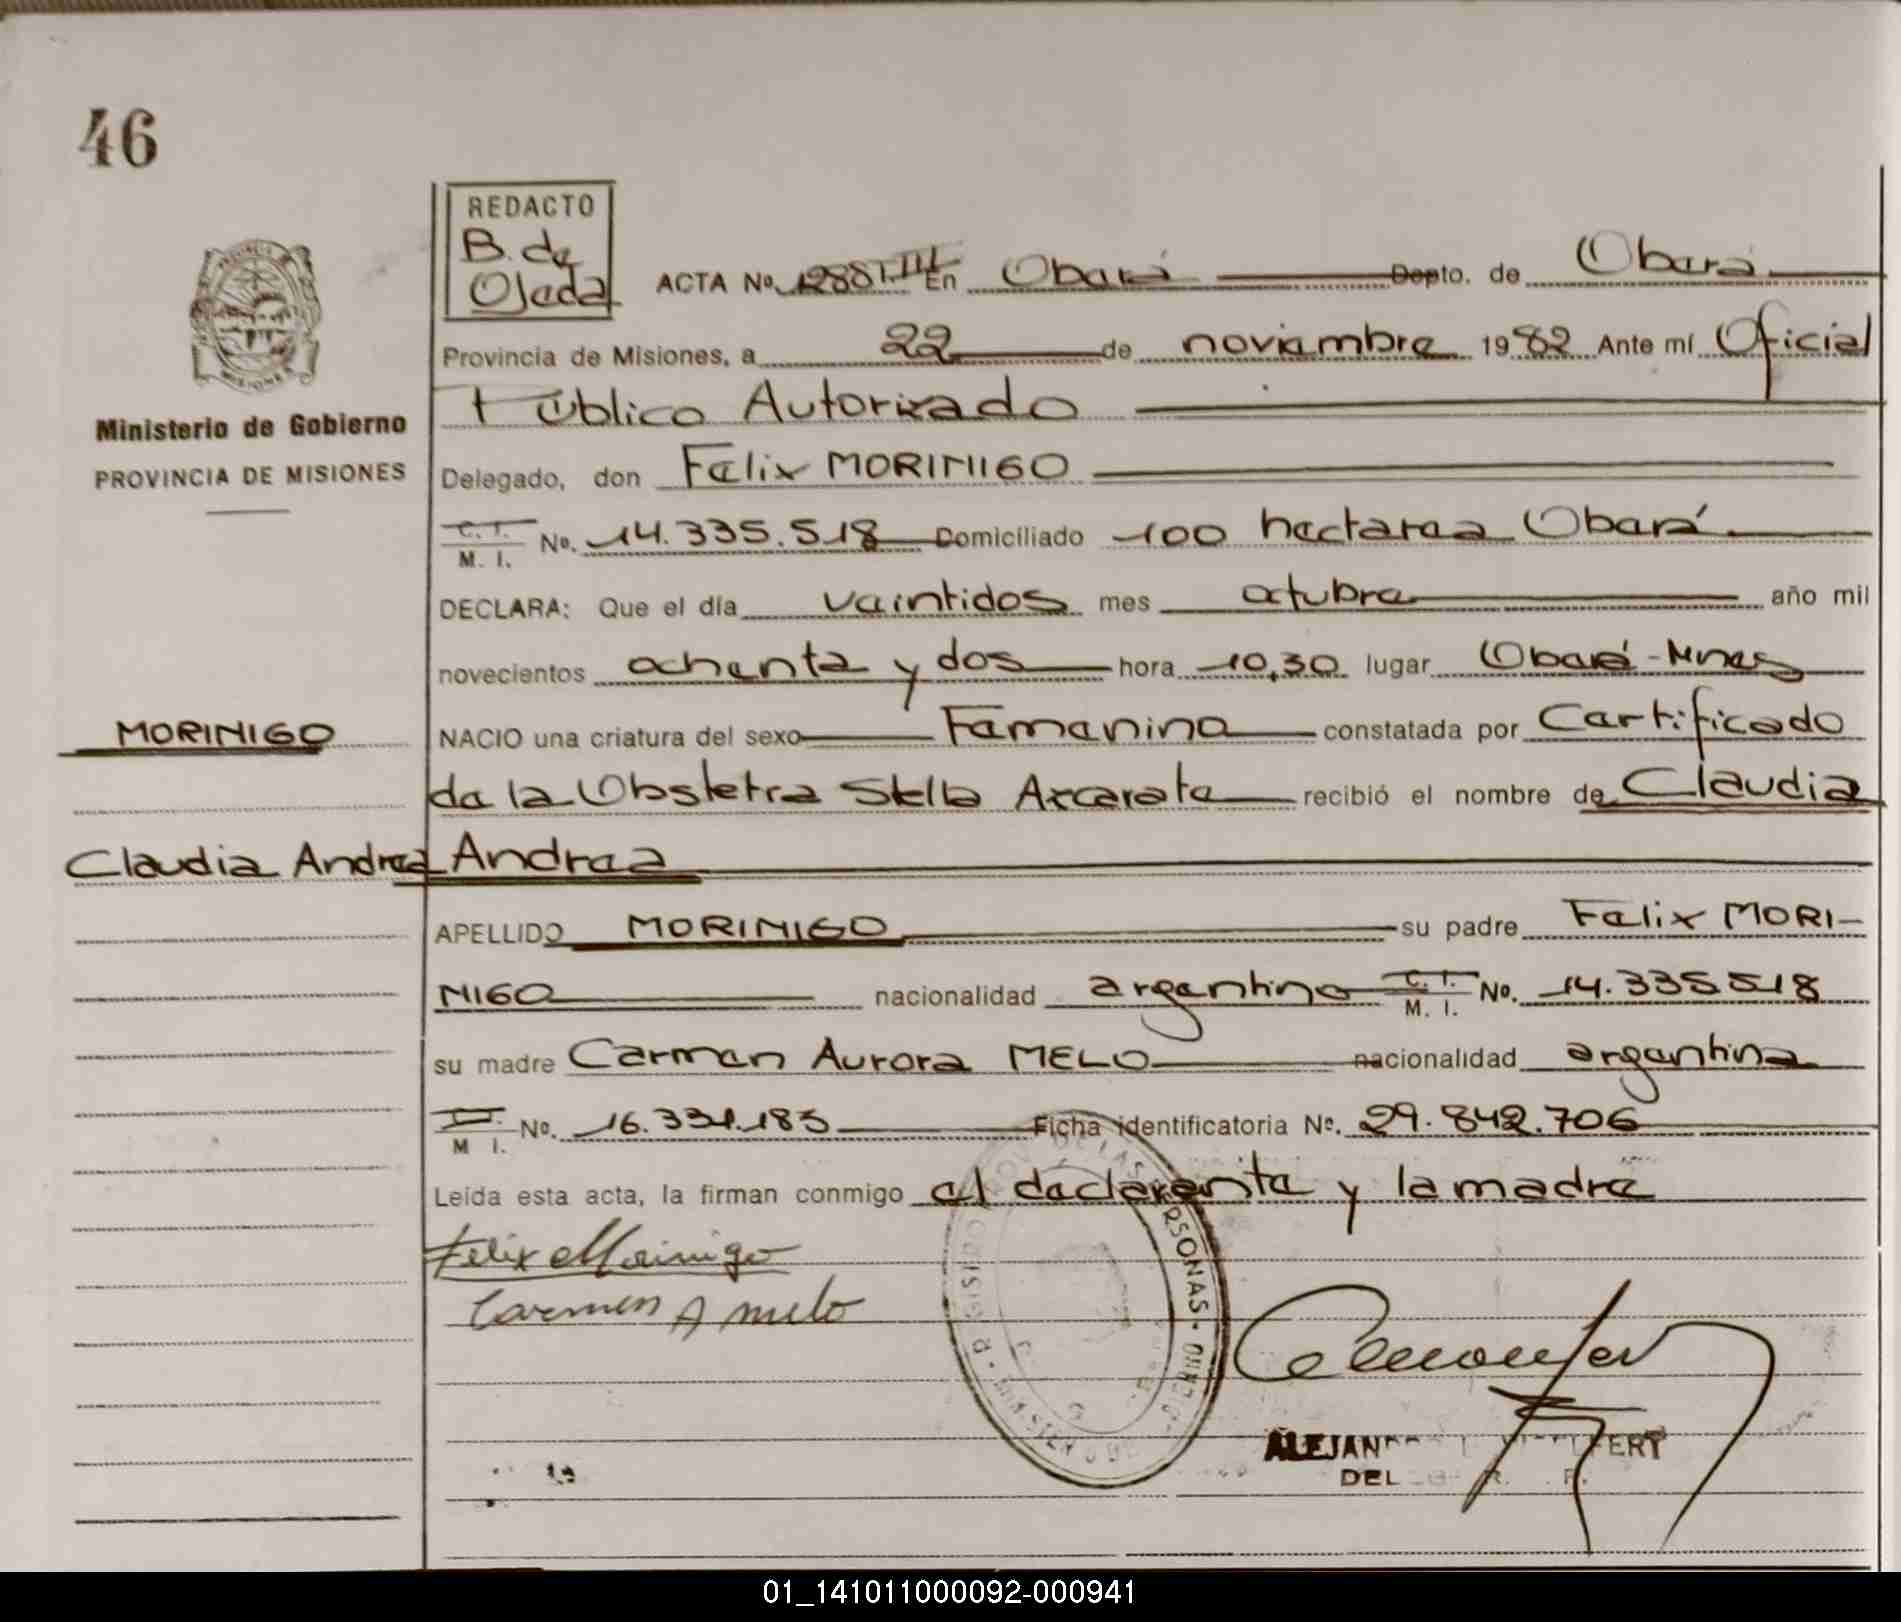 46
REDACTO
B. de
Ojeda
ACTA No. 1288T.III En Oberá Depto. de Oberá
Provincia de Misiones, a 22 de noviembre 1982 Ante mí Oficial
Ministerio de Gobierno
Público Autorizado
PROVINCIA DE MISIONES
Delegado, don Felix MORINIGO
C. I. M. I. No. 14.335.518 Domiciliado 100 hectarea Oberá
DECLARA: Que el día veintidos mes octubre año mil
novecientos ochenta y dos hora 10,30 lugar Oberá-Mnes
MORINIGO
NACIO una criatura del sexo Femenino constatada por Certificado
de la Obstetra Stella Azcarate recibió el nombre de Claudia
Claudia Andrea
Andrea
APELLIDO MORINIGO su padre Felix MORI-
NIGO nacionalidad argentino C. I. M. I. No. 14.335.518
su madre Carmen Aurora MELO nacionalidad argentina
M I. No. 16.331.183 Ficha identificatoria No. 29.842.706
Leída esta acta, la firman conmigo el declarante y la madre
Felix Morinigo
Carmen A melo
PERSONAS
ALEJAN
DEL
01_141011000092-000941